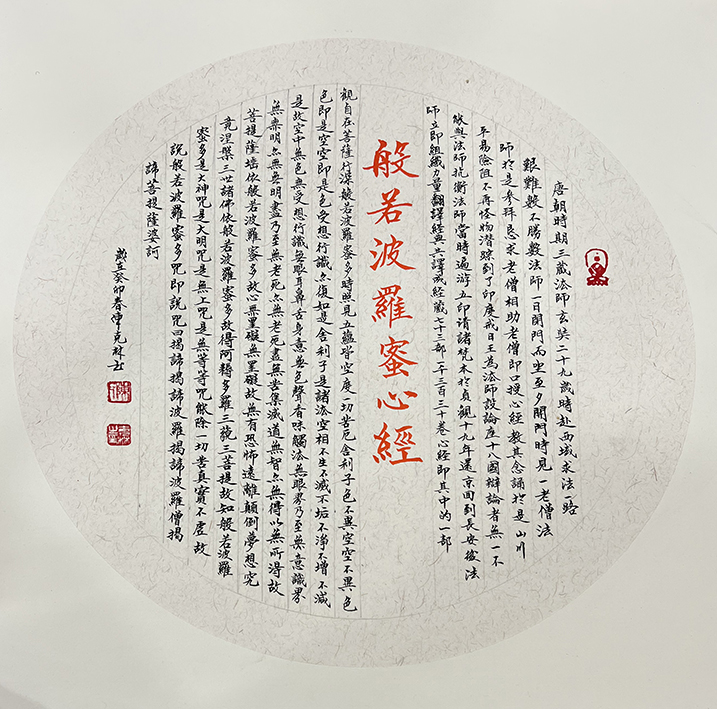 唐朝時期三藏法師玄奘二十九歲時赴西域求法一路
艱難數不勝數法師一日閉門而坐至夕開門時見一老僧法
師於是參拜懇求老僧相助老僧即口授心經教其念誦於是山川
平易險阻不再怪物潛踪到了印度戒日王為法師設論座十八國辯論者無一不
能與法師抗衡法師當時遍游五印請諸梵本於貞觀十九年還京回到長安後法
師立即組織力量翻譯經典共譯成經藏七十三部一千三百三十卷心經即其中的一部
般若波羅蜜心經
觀自在菩薩行深般若波羅蜜多時照見五蘊皆空度一切苦厄舍利子色不異空空不異色
色即是空空即是色受想行識亦復如是舍利子是諸法空相不生不滅不垢不淨不增不減
是故空中無色無受想行識無眼耳鼻舌身意無色聲香味觸法無眼界乃至無意識界
無無明亦無無明盡乃至無老死亦無老死盡無苦集滅道無智亦無得以無所得故
菩提薩埵依般若波羅蜜多故心無罣礙無罣礙故無有恐怖遠離顛倒夢想究
竟涅槃三世諸佛依般若波羅蜜多故得阿耨多羅三藐三菩提故知般若波羅
蜜多是大神咒是大明咒是無上咒是無等等咒能除一切苦真實不虛故
說般若波羅蜜多咒即說咒曰揭諦揭諦波羅揭諦波羅僧揭
諦菩提薩婆訶
歲在癸卯春